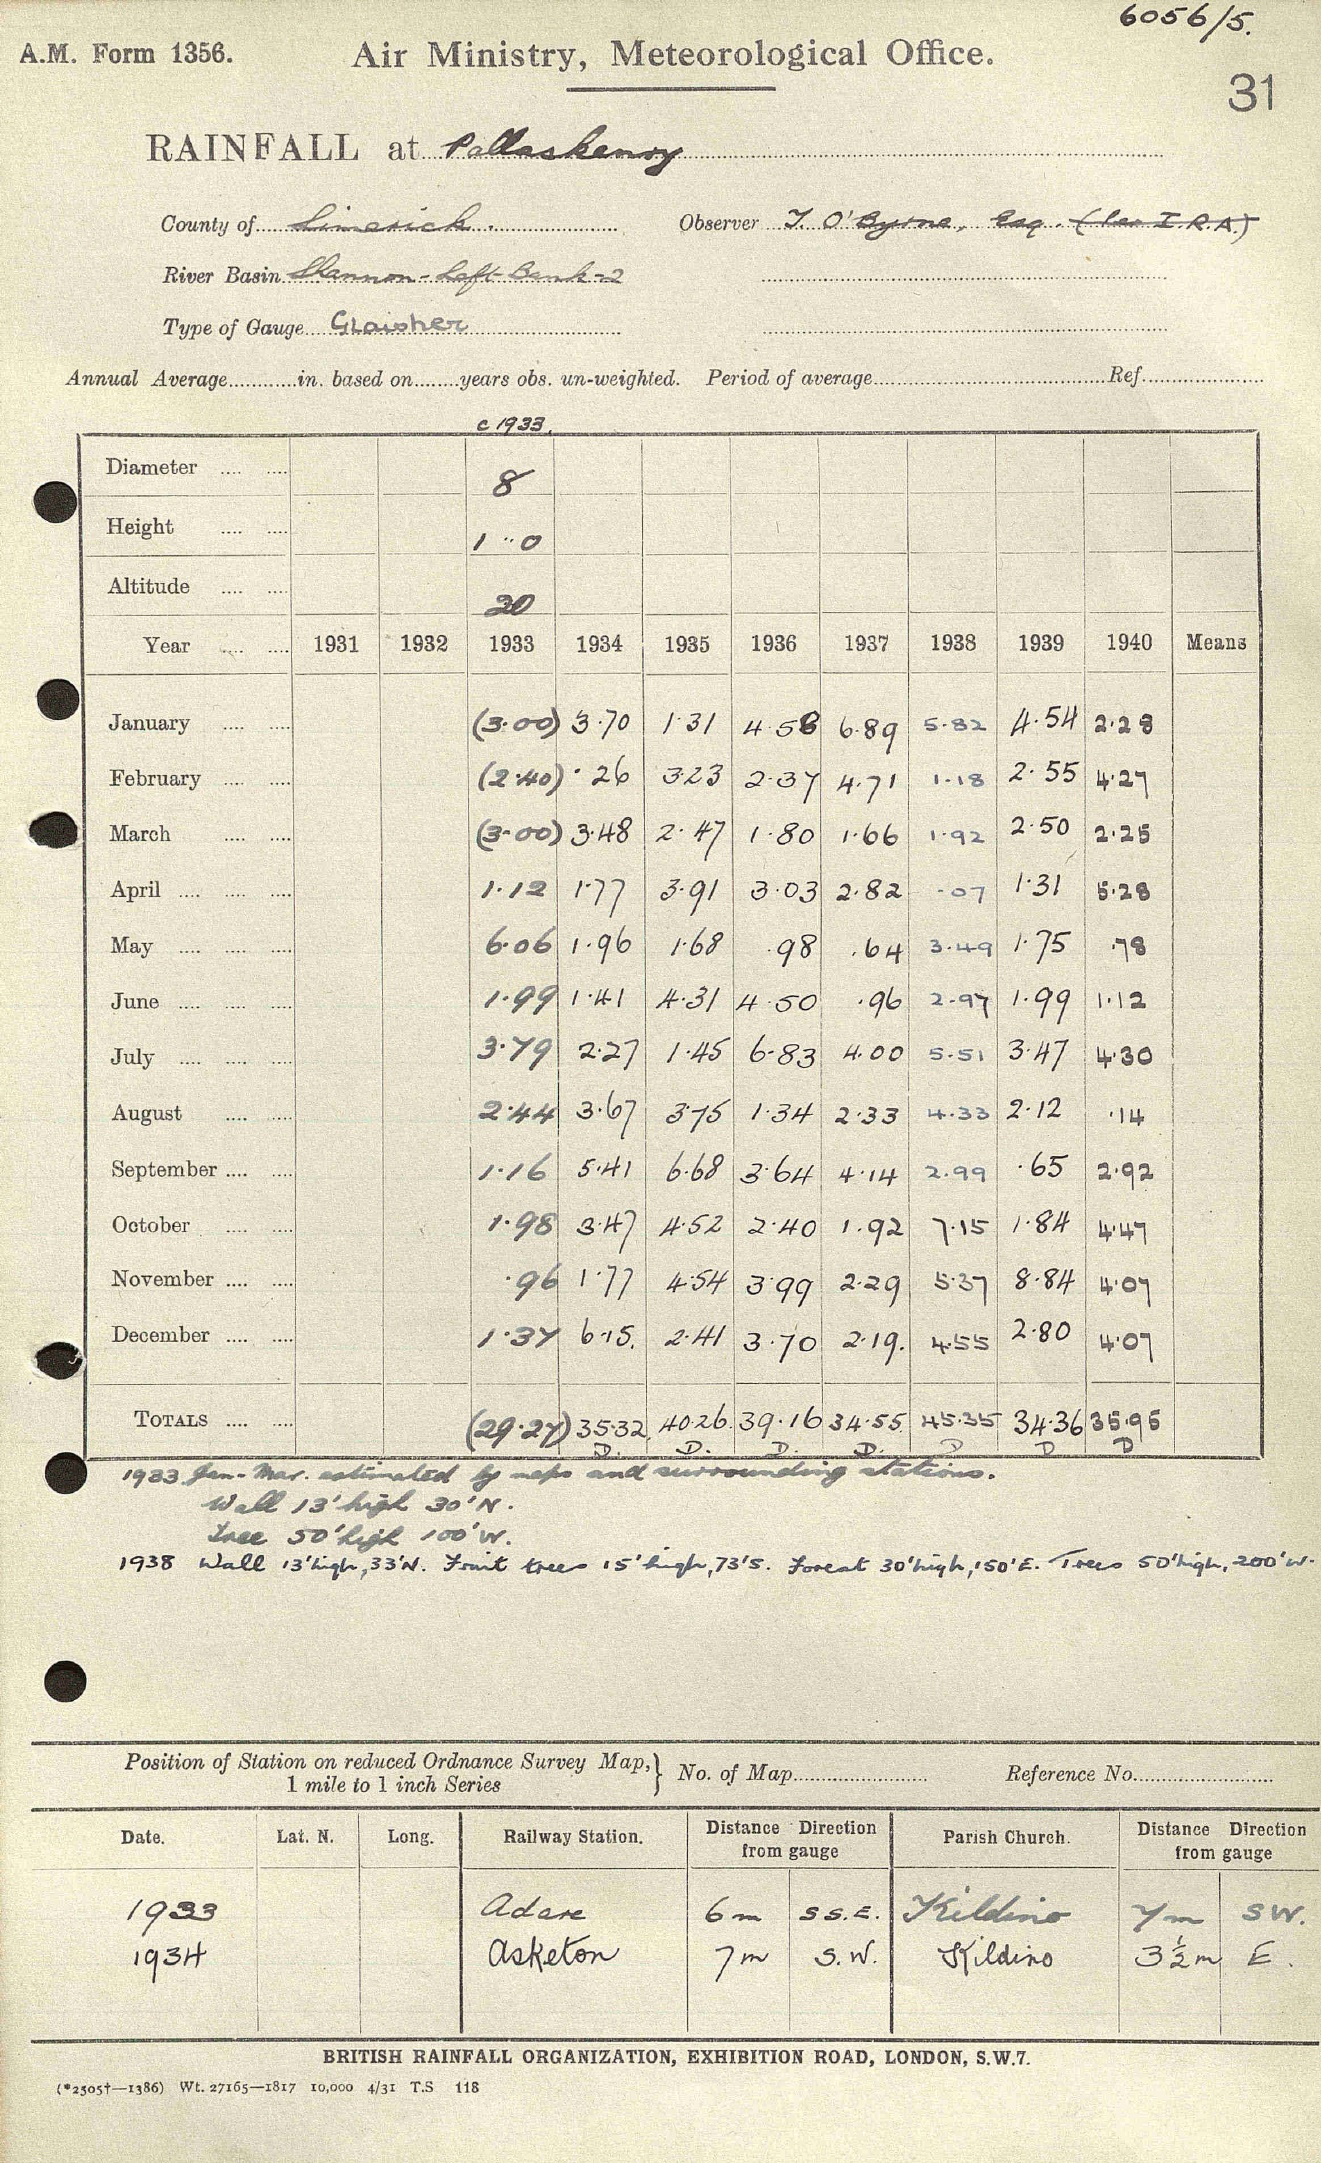 6056/5.
A.M. Form 1356. Air Ministry, Meteorological Office.
31
RAINFALL at Pallaskenry
County of Limerick. Observer T. O'Byrne, Esq. (per I.R.A.)
River Basin Shannon-Left Bank-2
Type of Gauge Glaisher
Annual Average in. based on years obs. un-weighted. Period of average Ref.
c 1933.
Diameter 8
Height 1 " 0
Altitude 20
Year 1931 1932 1933 1934 1935 1936 1937 1938 1939 1940 Means
January (3.00) 3.70 1.31 4.58 6.89 5.82 4.54 2.28
February (2.40) .26 3.23 2.37 4.71 1.18 2.55 4.27
March (3.00) 3.48 2.47 1.80 1.66 1.92 2.50 2.25
April 1.12 1.77 3.91 3.03 2.82 .07 1.31 5.28
May 6.06 1.96 1.68 .98 .64 3.49 1.75 .78
June 1.99 1.41 4.31 4.50 .96 2.97 1.99 1.12
July 3.79 2.27 1.45 6.83 4.00 5.51 3.47 4.30
August 2.44 3.67 3.75 1.34 2.33 4.33 2.12 .14
September 1.16 5.41 6.68 3.64 4.14 2.99 .65 2.92
October 1.98 3.47 4.52 2.40 1.92 7.15 1.84 4.47
November .96 1.77 4.54 3.99 2.29 5.37 8.84 4.07
December 1.37 6.15. 2.41 3.70 2.19. 4.55 2.80 4.07
TOTALS (29.27) 35.32 40.26 39.16 34.55 45.35 34.36 35.95
D. D. D. D. D D D
1933 Jan-Mar. estimated by maps and surrounding stations.
Wall 13' high 30' N.
Tree 50' high 100' W.
1938 Wall 13' high, 33' N. Fruit trees 15' high, 73' S. Forest 30' high, 150' E. Trees 50' high, 200' W.
Position of Station on reduced Ordnance Survey Map,} No. of Map Reference No.
1 mile to 1 inch Series
Date. Lat. N. Long. Railway Station. Distance Direction from gauge Parish Church. Distance Direction from gauge
1933 Adare 6m S S.E. Kildino 7m SW.
1934 Asketon 7m S.W. Kildino 3½m E.
BRITISH RAINFALL ORGANIZATION, EXHIBITION ROAD, LONDON, S.W.7.
(*2505†—1386) Wt. 27165—1817 10,000 4/31 T.S 118